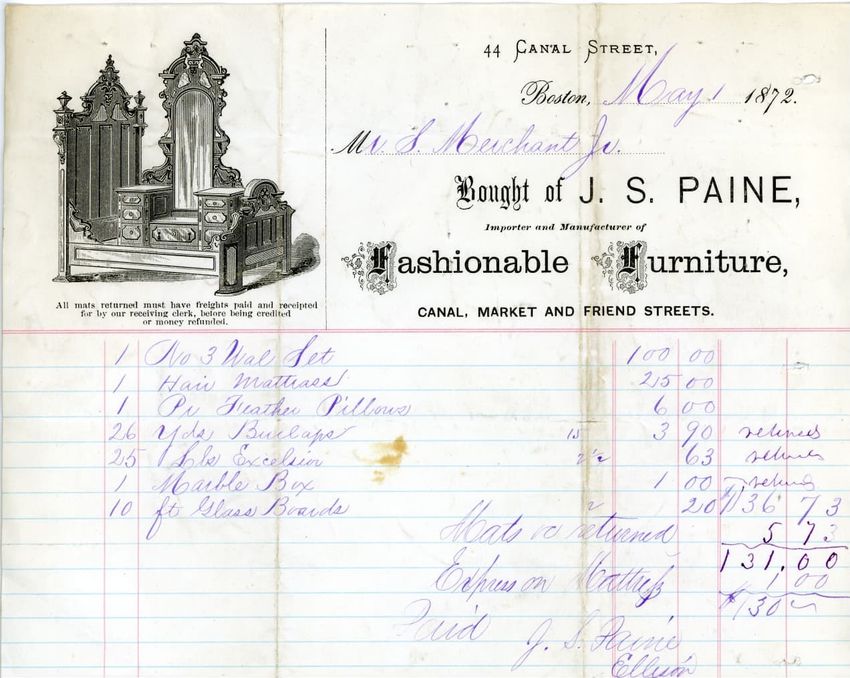 44 CANAL STREET,
Boston, May 1 1872.
Mr. S. Merchant Jr.
Bought of J. S. PAINE,
Importer and Manufacturer of
Fashionable Furniture,
CANAL, MARKET AND FRIEND STREETS.
All mats returned must have freights paid and receipted
for by our receiving clerk, before being credited
or money refunded.
1 No 3 Wal Set 100 00
1 Hair Mattrass 25 00
1 Pr Feather Pillows 6 00
26 Yds Burlaps 15 3 90
25 Lbs Excelsior 2½ 63
1 Marble Box 1 00
10 ft Glass Boards 2 20 $136 73
Mats returned 5 73
131.00
Express on Mattress 1 00
$130
Paid J. S. Paine
Ellison